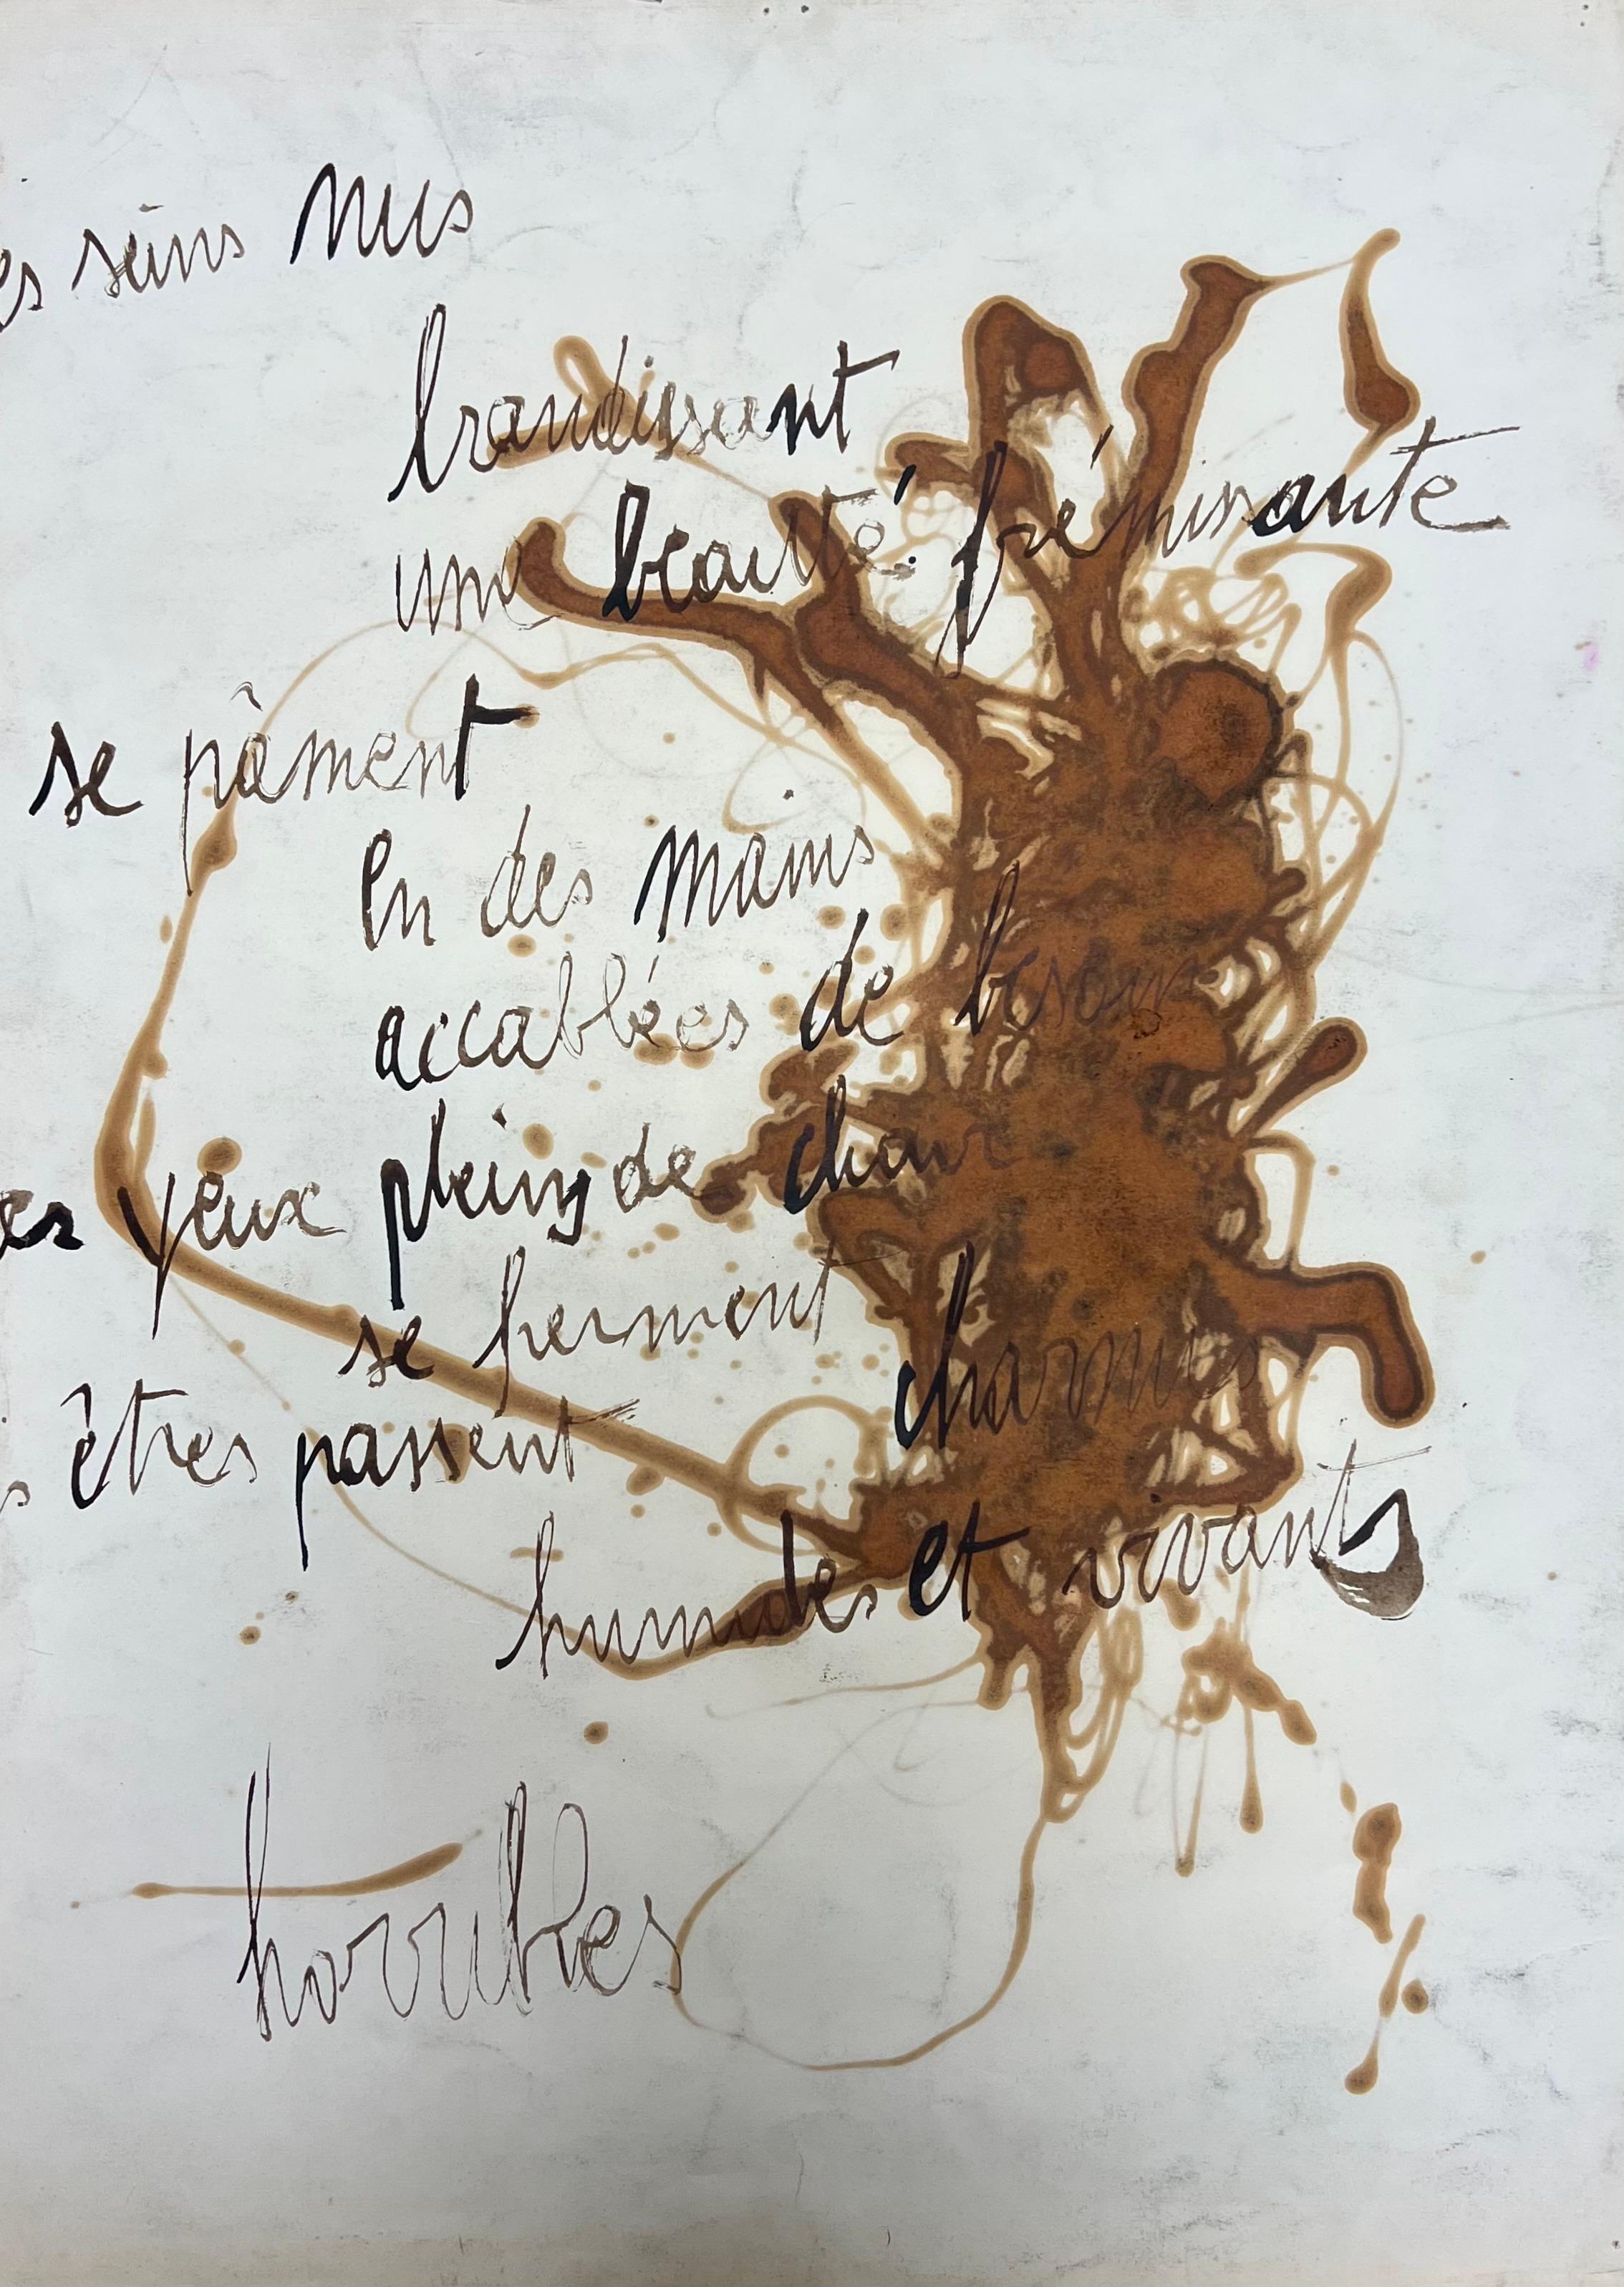 es seins nus
brandissant
une beauté frémissante
se pâment
en des mains
accablées de besoin
es yeux pleins de chair
se ferment charmés
s êtres passent
humides et vivants
horribles